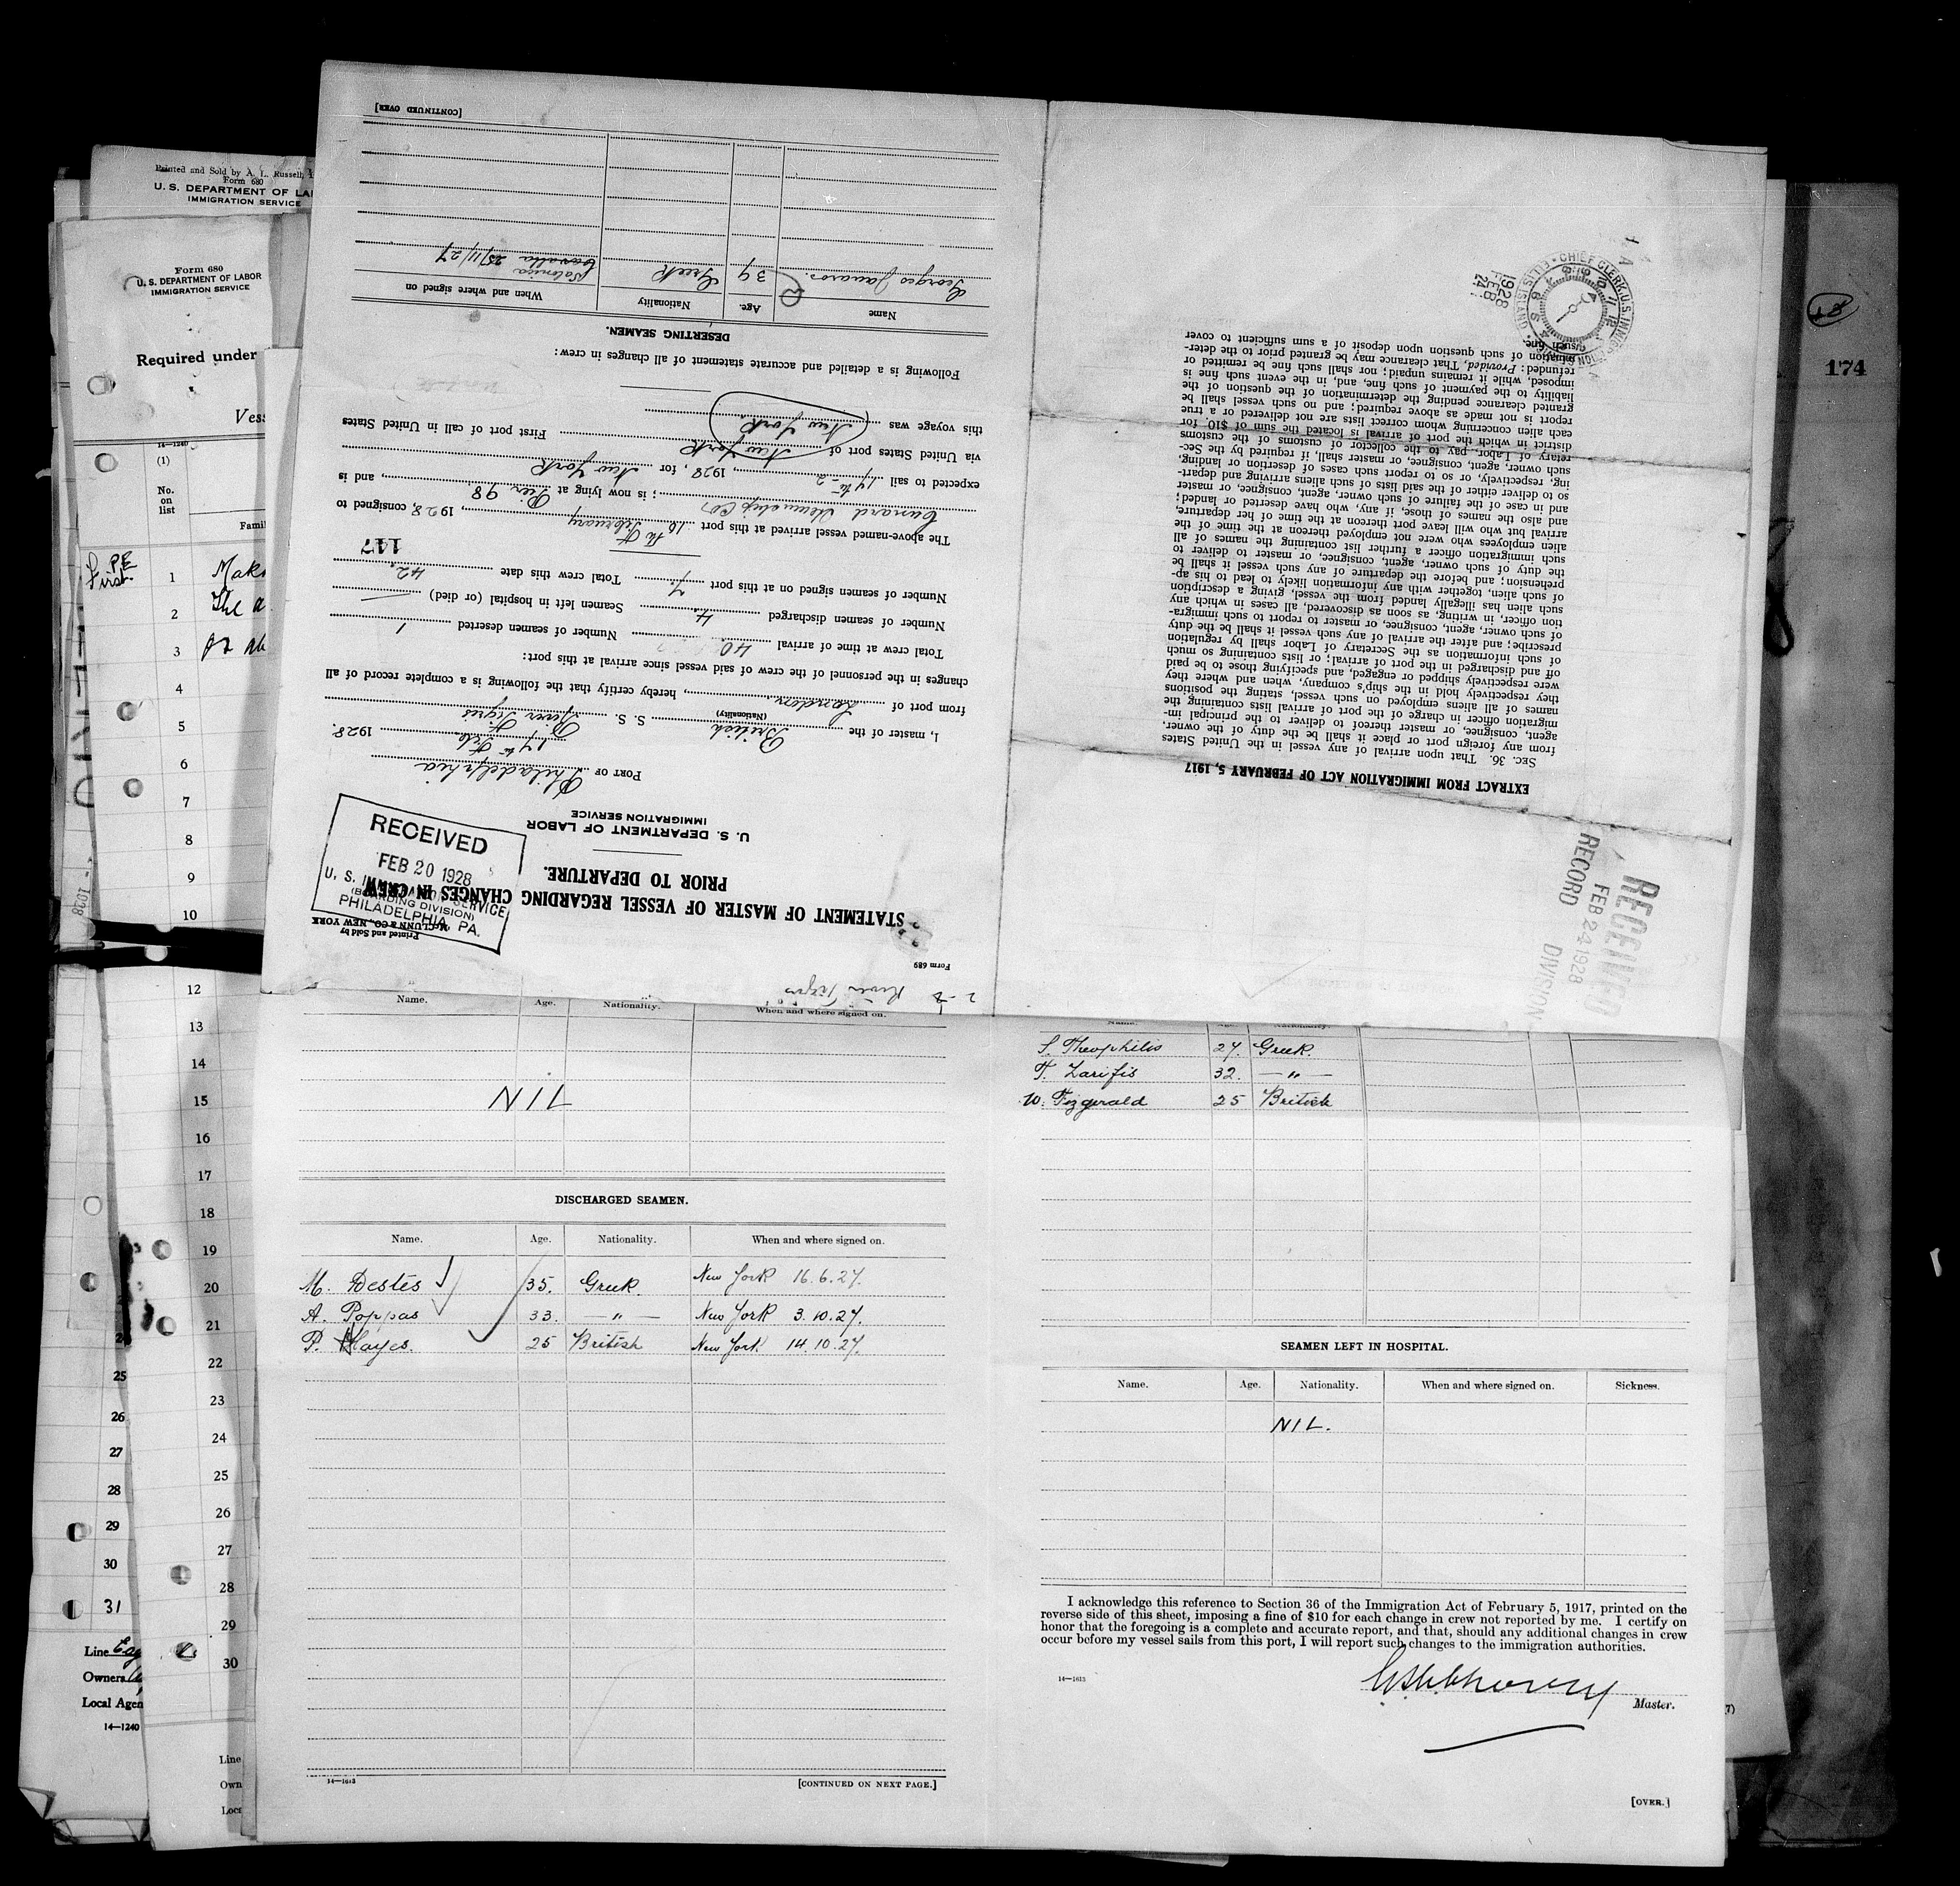 Form 689
2-8 River Tigris
Printed and Sold by
McCLUNN & CO., NEW YORK
STATEMENT OF MASTER OF VESSEL REGARDING CHANGES IN CREW
PRIOR TO DEPARTURE.
RECEIVED
FEB 20 1928
U. S. IMMIGRATION SERVICE
(BOARDING DIVISION)
PHILADELPHIA, PA.
U. S. DEPARTMENT OF LABOR
IMMIGRATION SERVICE
PORT OF Philadelphia
17th Feb 1928.
I, master of the British S. S. River Tigris
(Nationality)
from port of London, hereby certify that the following is a complete record of all
changes in the personnel of the crew of said vessel since arrival at this port:
Total crew at time of arrival 40. Number of seamen deserted 1
Number of seamen discharged 4. Seamen left in hospital (or died) —
Number of seamen signed on at this port 7. Total crew this date 42.
117
The above-named vessel arrived at this port February, 1928, consigned to
Cunard Steamship Co; is now lying at Pier 98, and is
expected to sail 17th-2, 1928, for New York
via United States port of New York First port of call in United States
this voyage was New York
Following is a detailed and accurate statement of all changes in crew:
DESERTING SEAMEN.
Name Age. Nationality When and where signed on
Georges 39 Greek Salonica 25/11/27
[CONTINUED OVER]
EXTRACT FROM IMMIGRATION ACT OF FEBRUARY 5, 1917
SEC. 36. That upon arrival of any vessel in the United States
from any foreign port or place it shall be the duty of the owner,
agent, consignee, or master thereof to deliver to the principal im-
migration officer in charge of the port of arrival lists containing the
names of all aliens employed on such vessel, stating the positions
they respectively hold in the ship's company, when and where they
were respectively shipped or engaged, and specifying those to be paid
off and discharged in the port of arrival; or lists containing so much
of such information as the Secretary of Labor shall by regulation
prescribe; and after the arrival of any such vessel it shall be the duty
of such owner, agent, consignee, or master to report to such immigra-
tion officer, in writing, as soon as discovered, all cases in which any
such alien has illegally landed from the vessel, giving a description
of such alien, together with any information likely to lead to his ap-
prehension; and before the departure of any such vessel it shall be
the duty of such owner, agent, consignee, or master to deliver to
such immigration officer a further list containing the names of all
alien employees who were not employed thereon at the time of the
arrival but who will leave port thereon at the time of her departure,
and also the names of those, if any, who have deserted or landed;
and in case of the failure of such owner, agent, consignee, or master
so to deliver either of the said lists of such aliens arriving and depart-
ing, respectively, or so to report such cases of desertion or landing,
such owner, agent, consignee, or master, shall, if required by the Sec-
retary of Labor, pay to the collector of customs of the customs
district in which the port of arrival is located the sum of $10 for
each alien concerning whom correct lists are not delivered or a true
report is not made as above required; and no such vessel shall be
granted clearance pending the determination of the question of the
liability to the payment of such fine, and, in the event such fine is
imposed, while it remains unpaid; nor shall such fine be remitted or
refunded: Provided, That clearance may be granted prior to the deter-
mination of such question upon deposit of a sum sufficient to cover
such fine.
CHIEF CLERK, U.S. IMMIGRATION
ELLIS ISLAND
1928
FEB
24
RECEIVED
FEB 24 1928
RECORD DIVISION
Name. Age. Nationality. When and where signed on.
NIL
DISCHARGED SEAMEN.
Name. Age. Nationality. When and where signed on.
M. Destes 35. Greek. New York 16.6.27.
A. Poppas 33. — " — New York 3.10.27.
P. Hayes. 25 British New York 14.10.27.
14—1613
[CONTINUED ON NEXT PAGE.]
S. Theophilis 27. Greek.
T. Zarifis 32. — " —
W. Fizgerald 25 British
SEAMEN LEFT IN HOSPITAL.
Name. Age. Nationality. When and where signed on. Sickness.
NIL.
I acknowledge this reference to Section 36 of the Immigration Act of February 5, 1917, printed on the
reverse side of this sheet, imposing a fine of $10 for each change in crew not reported by me. I certify on
honor that the foregoing is a complete and accurate report, and that, should any additional changes in crew
occur before my vessel sails from this port, I will report such changes to the immigration authorities.
14—1613
Master.
[OVER.]
Printed and Sold by A. L. Russell,
Form 680
U. S. DEPARTMENT OF LA
IMMIGRATION SERVICE
Form 680
U. S. DEPARTMENT OF LABOR
IMMIGRATION SERVICE
Required under
Vess
14—1240
(1)
No.
on
list
Famil
PE
First
1
2
3
4
5
6
7
8
9
10
12
13
14
15
16
17
18
19
20
21
22
23
24
25
26
27
28
29
30
25
26
27
28
29
30
31
Line
Owners
Local Agen
14—1240
Line
Own
Loca
174